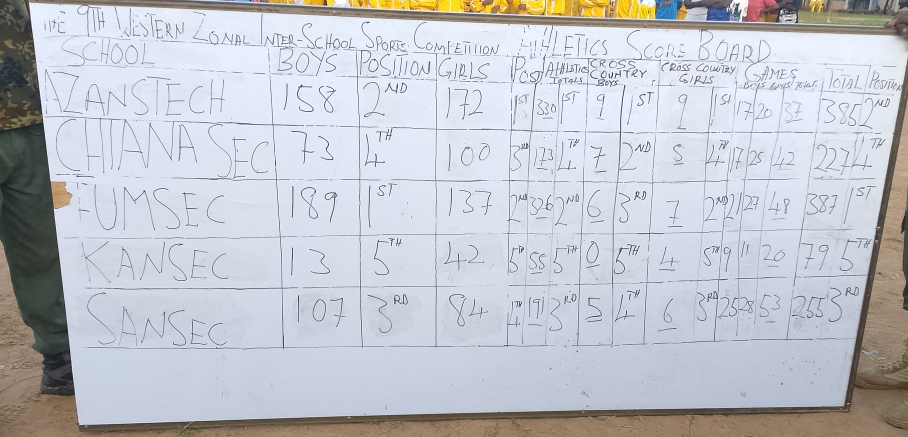 THE 9TH WESTERN ZONAL INTER-SCHOOL SPORTS COMPETITION ATHLETICS SCORE BOARD
SCHOOL BOYS POSITION GIRLS POST ATHLETIC TOTALS CROSS COUNTRY BOYS CROSS COUNTRY GIRLS GAMES BOYS GIRLS TOTAL TOTAL POSITION
ZANSTECH 158 2ND 172 1ST 330 1ST 9 1ST 9 1ST 17 20 37 385 2ND
CHIANA SEC 73 4TH 100 3RD 173 4TH 7 2ND 5 4TH 17 25 42 227 4TH
FUMSEC 189 1ST 137 2ND 326 2ND 6 3RD 7 2ND 21 27 48 387 1ST
KANSEC 13 5TH 42 5TH 55 5TH 0 5TH 4 5TH 9 11 20 79 5TH
SANSEC 107 3RD 84 4TH 191 3RD 5 4TH 6 3RD 25 28 53 255 3RD